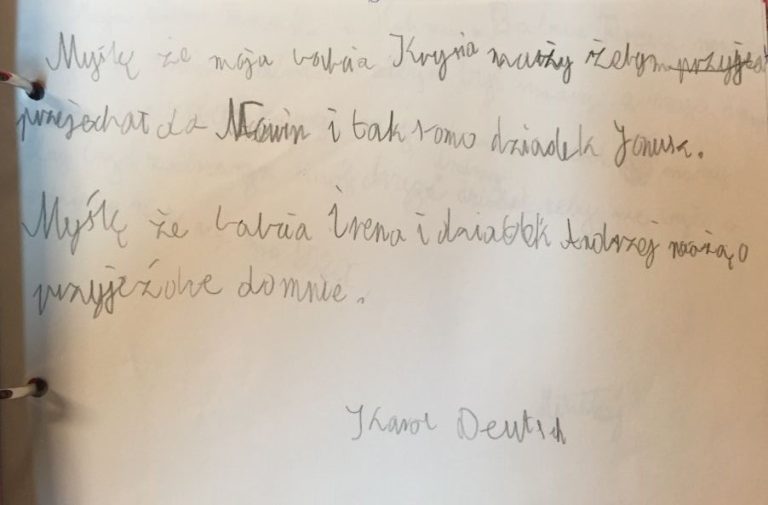 Myślę że moja babcia Krysia marzy żebym przyje
przejechał do Mawin i tak samo dziadek Janusz.
Myślę że babcia Irena i dziadek Andrzej marzą o
przyjeździe do mnie.
Karol Deutsch